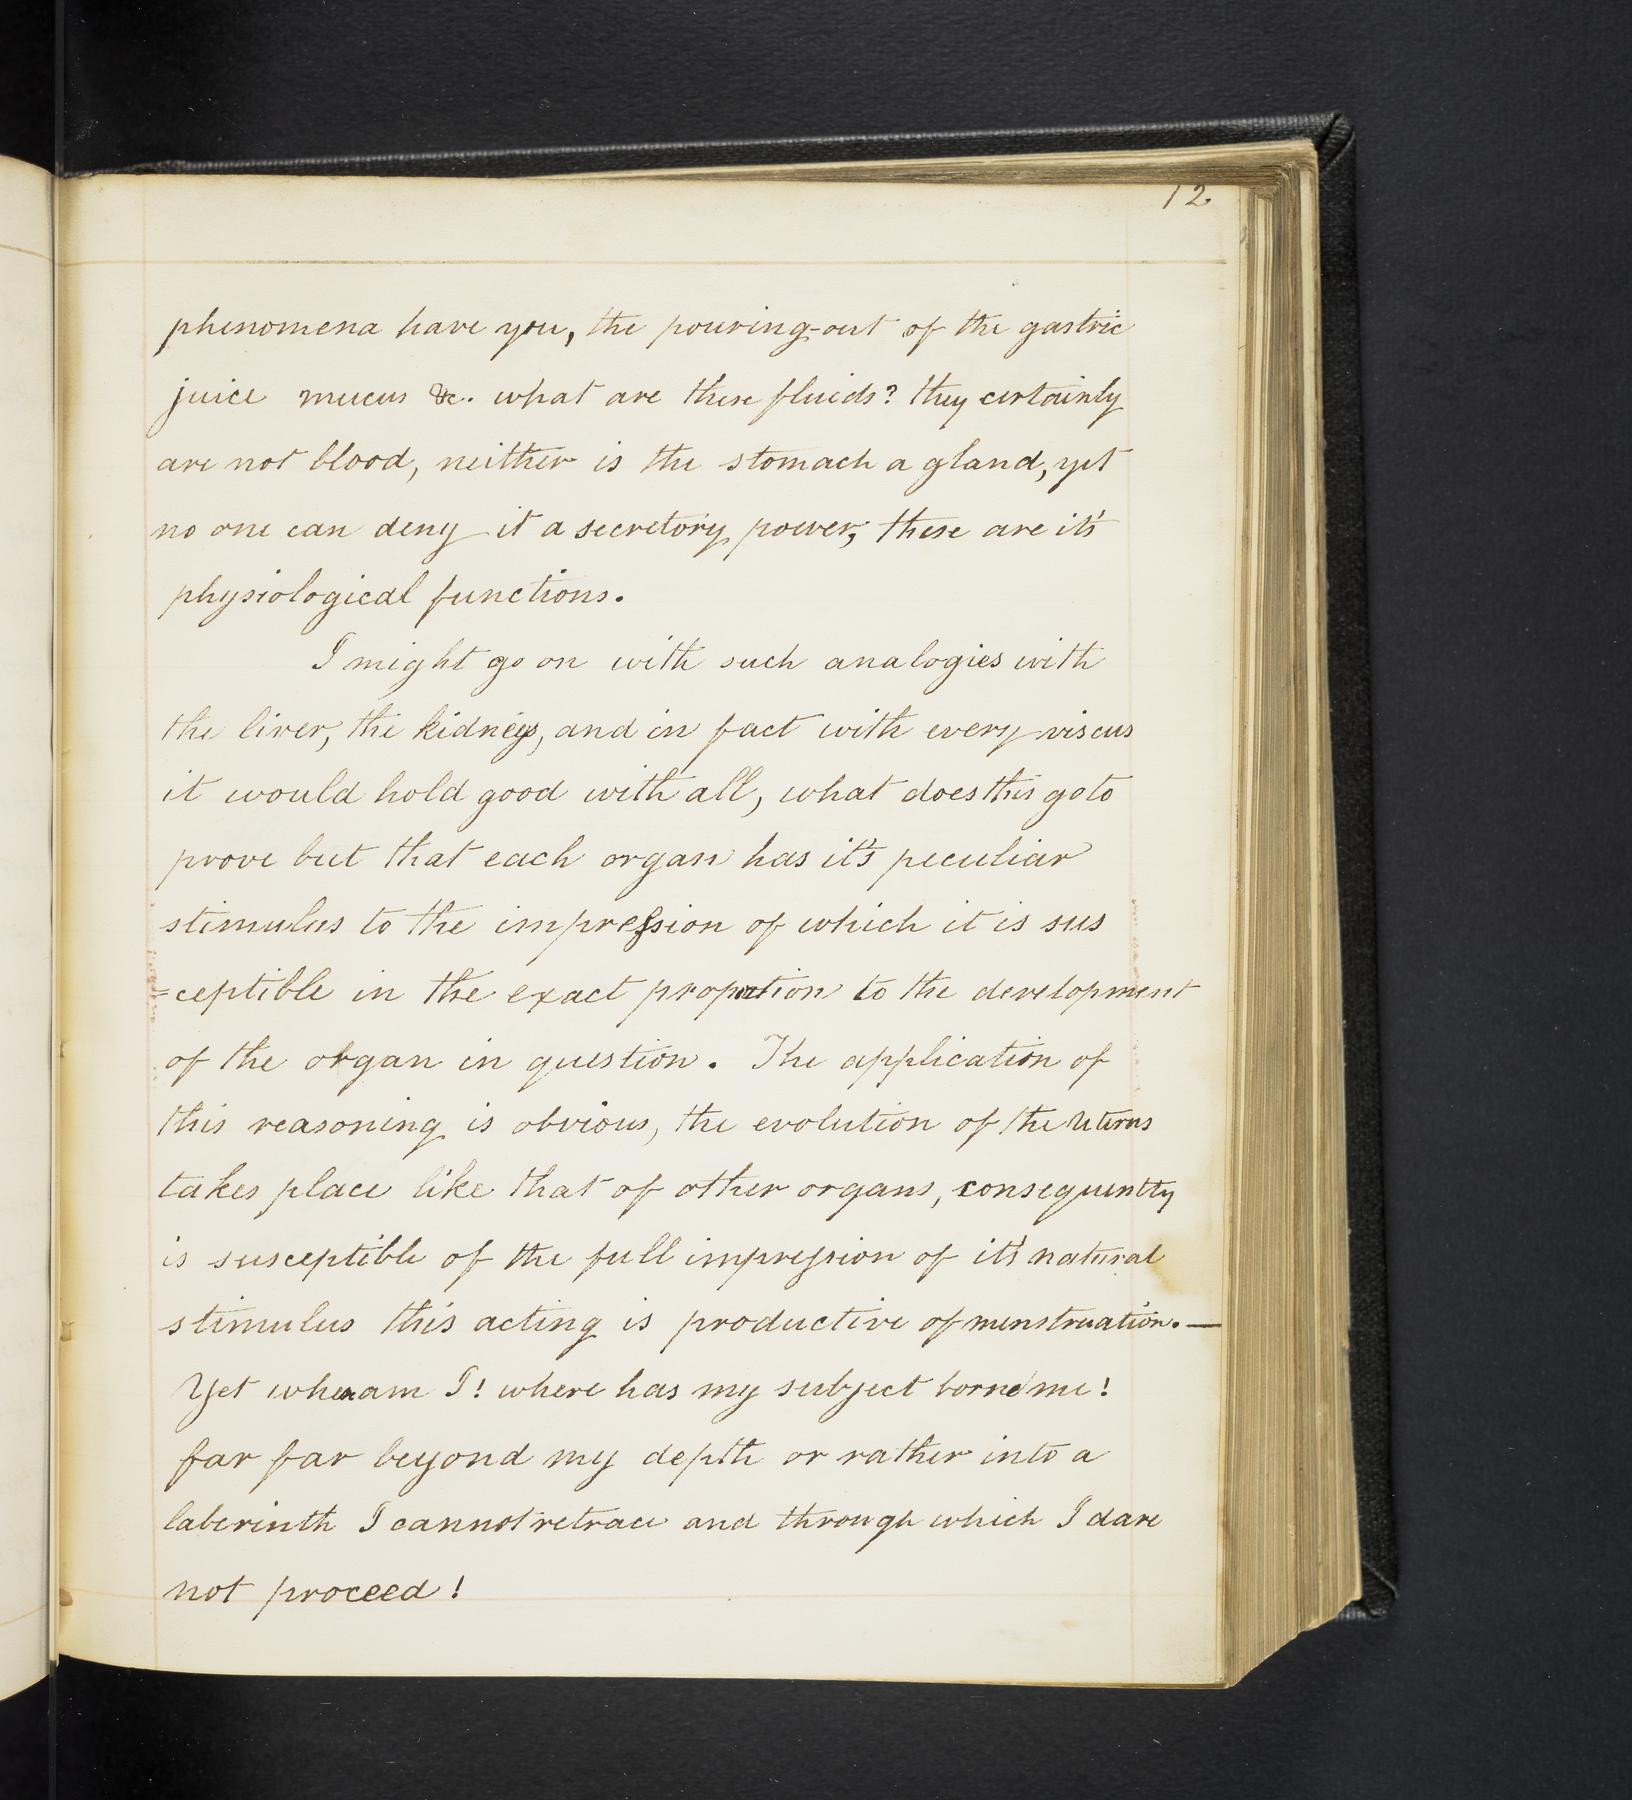 12
phenomena have you, the pouring-out of the gastric
juice mucus &c. what are these fluids? they certainly
are not blood, neither is the stomach a gland, yet
no one can deny it a secretory power; these are it's
physiological functions.
I might go on with such analogies with
the liver, the kidneys, and in fact with every viscus
it would hold good with all, what does this go to
prove but that each organ has it's peculiar
stimulus to the impression of which it is sus
=ceptible in the exact proportion to the development
of the organ in question. The application of
this reasoning is obvious, the evolution of the uterus
takes place like that of other organs, consequently
is susceptible of the full impression of it's natural
stimulus this acting is productive of menstruation.—
Yet where am I! where has my subject borne me!
far far beyond my depth or rather into a
laberinth I cannot retrace and through which I dare
not proceed!